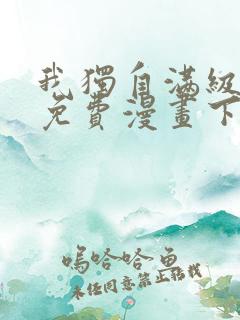 我獨自滿級
免費漫畫下
嗚哈哈魚
未任同意禁止轉載